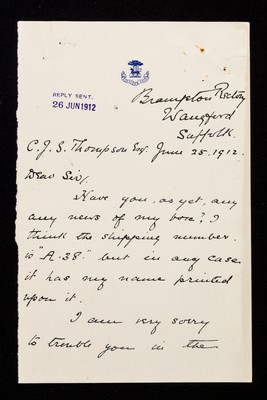 REPLY SENT.
26 JUN 1912
Brampton Rectory
Wangford
Suffolk.
C. J. S. Thompson Esq. June 25. 1912.
Dear Sir/.
Have you, as yet, any
any news of my box? I
think the shipping number
is "A. 38." but in any case
it has my name printed
upon it.
I am very sorry
to trouble you in the